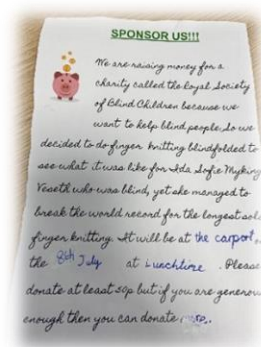 SPONSOR US!!!
We are raising money for a
charity called the Royal Society
of Blind Children because we
want to help blind people. So we
decided to do finger knitting blindfolded to
see what it was like for Ida Sofie Myking
Veseth who was blind, yet she managed to
break the world record for the longest solo
finger knitting. It will be at the carport on
the 8th July at Lunchtime. Please
donate at least 50p but if you are generous
enough then you can donate more.